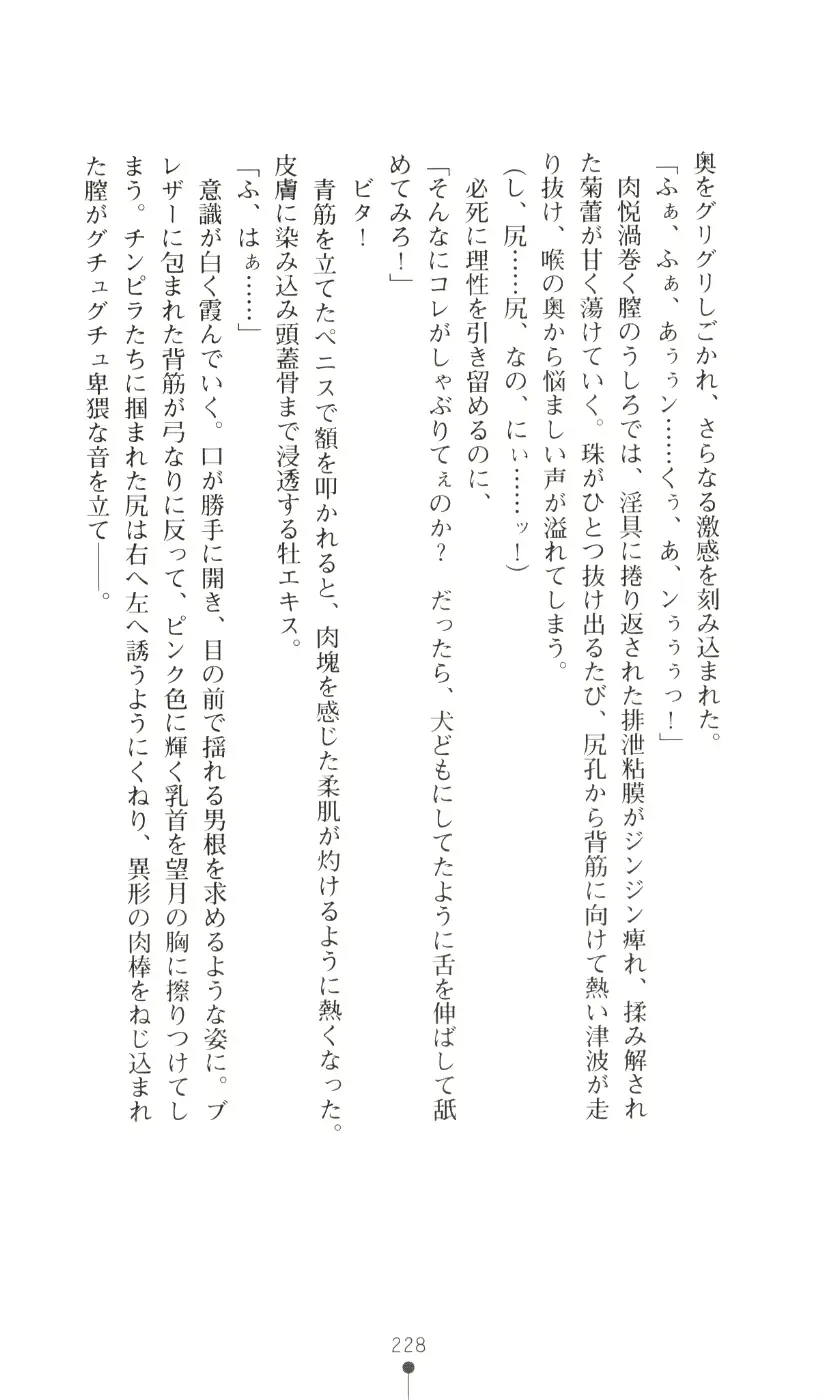 奥をグリグリしごかれ、さらなる激感を刻み込まれた。
「ふぁ、ふぁ、あぅぅン……くぅ、あ、ンぅぅぅっ！」
　肉悦渦巻く膣のうしろでは、淫具に捲り返された排泄粘膜がジンジン痺れ、揉み解され
た菊蕾が甘く蕩けていく。珠がひとつ抜け出るたび、尻孔から背筋に向けて熱い津波が走
り抜け、喉の奥から悩ましい声が溢れてしまう。
（し、尻……尻、なの、にぃ……ッ！）
　必死に理性を引き留めるのに、
「そんなにコレがしゃぶりてぇのか？　だったら、犬どもにしてたように舌を伸ばして舐
めてみろ！」
　ビタ！
　青筋を立てたペニスで額を叩かれると、肉塊を感じた柔肌が灼けるように熱くなった。
皮膚に染み込み頭蓋骨まで浸透する牡エキス。
「ふ、はぁ……」
　意識が白く霞んでいく。口が勝手に開き、目の前で揺れる男根を求めるような姿に。ブ
レザーに包まれた背筋が弓なりに反って、ピンク色に輝く乳首を望月の胸に擦りつけてし
まう。チンピラたちに掴まれた尻は右へ左へ誘うようにくねり、異形の肉棒をねじ込まれ
た膣がグチュグチュ卑猥な音を立て――。
228